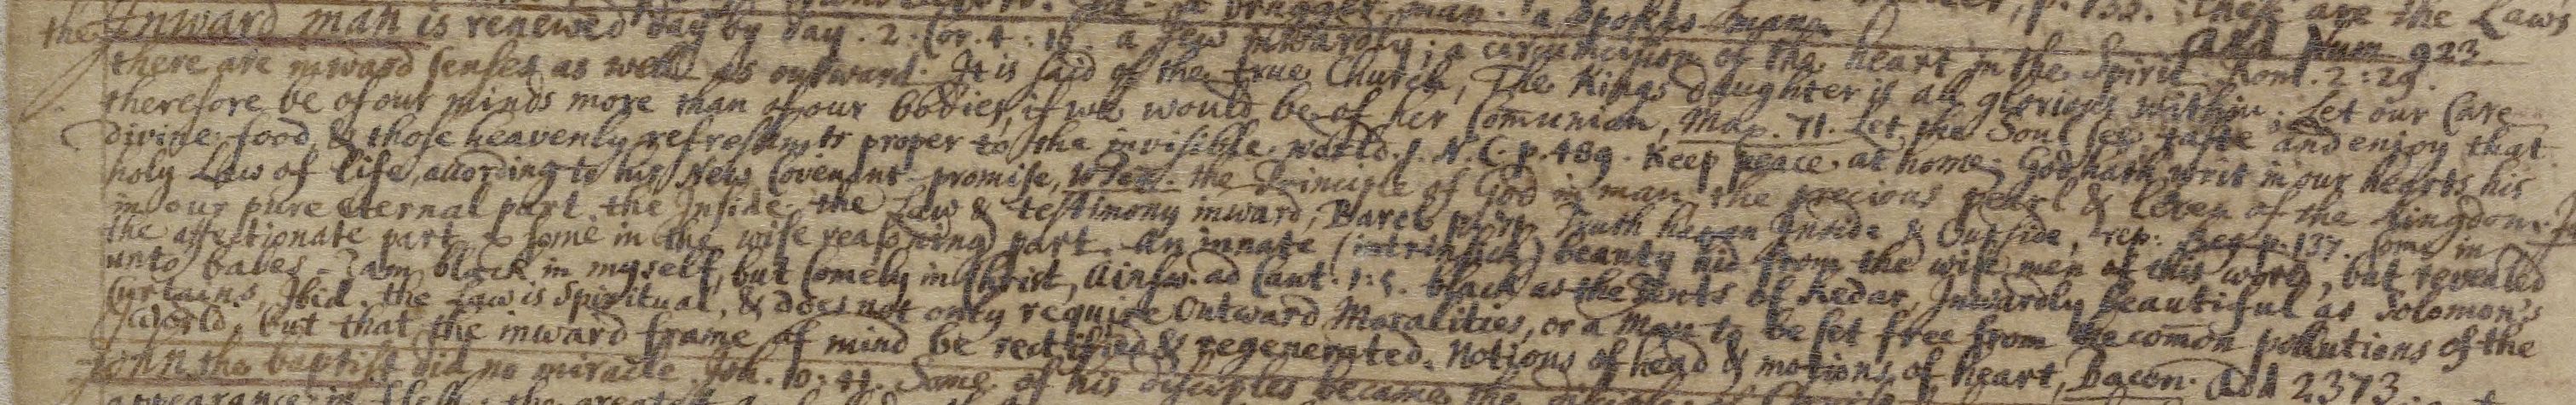 a Spokes mans
p. 132. these are the Laws
Add Num 923
the Inward man is renewed day by day. 2. Cor. 4: 16. a Jew inwardly; a circumcision of the heart in the Spirit. Rom. 2: 29.
there are inward senses as well as outward. It is said of the true Church, The Kings daughter is all glorious within. Let our Care
therefore be of our minds more than of our bodies, if we would be of her Comunion, Map. 71. Let the Soul see, taste and enjoy that
divine food, & those heavenly refreshmts proper to the invisible world. J. N. C. p. 489. Keep peace at home. God hath writ in our hearts his
holy Law of life, according to his New Covenant-promise, the Principle of God in man the precious pearl & leven of the Kingdom.
in our pure eternal part. the Inside. the Law & testimony inward, Barcl Truth has an Inside & Outside, rep: Beg. p. 137. Some in
the affectionate part, & some in the wise reasoning part. An innate (intrinsick) beauty hid from the wise men of this world, but revealed
unto babes - I am black in myself, but Comely in Christ, Ainsw. ad Cant. 1: 5. black as the Tents of Kedar, Inwardly beautiful as Solomon's
Curtains, Ibid. the Law is Spiritual, & does not only require Outward Moralities, or a Man to be set free from the comon pollutions of the
World, but that the inward frame of mind be rectified & regenerated. Notions of head & motions of heart, Bacon. Add 2373.
John the baptist did no miracle. Joh. 10: 41. Some of his disciples became the disciples of
appearance in flesh, the greatest